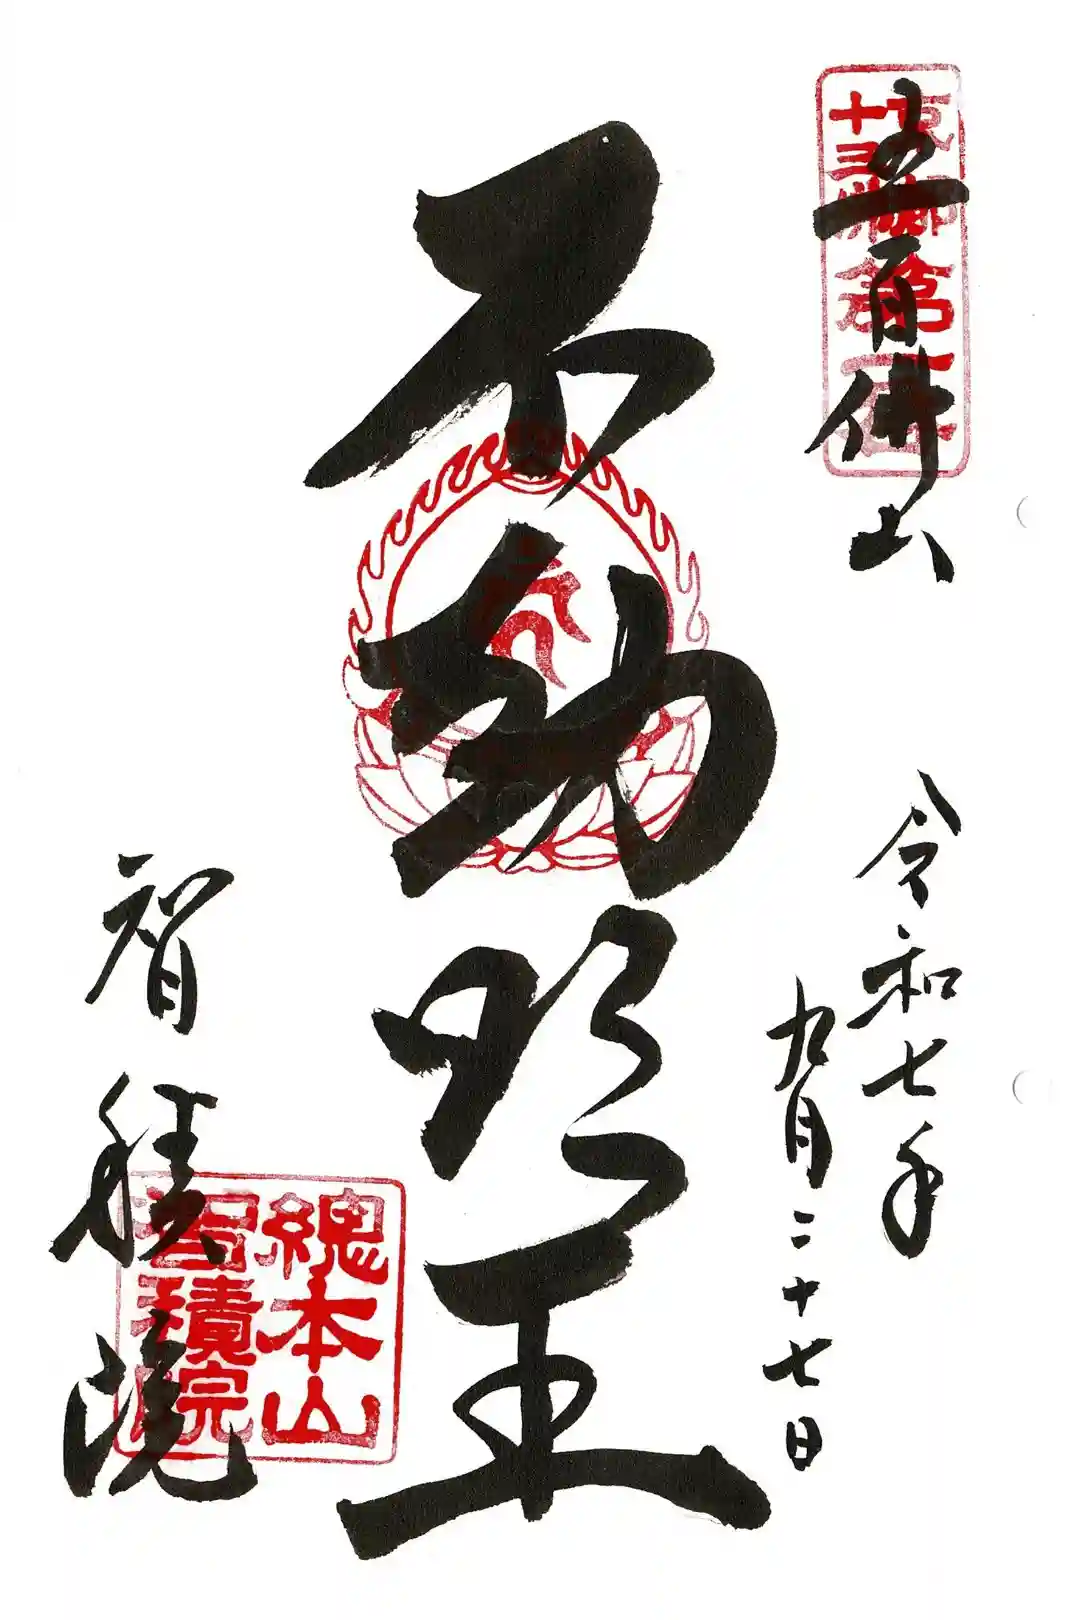 五百佛山
京都十三佛霊場第一番
令和七年
九月二十七日
不動明王
智積院
総本山智積院